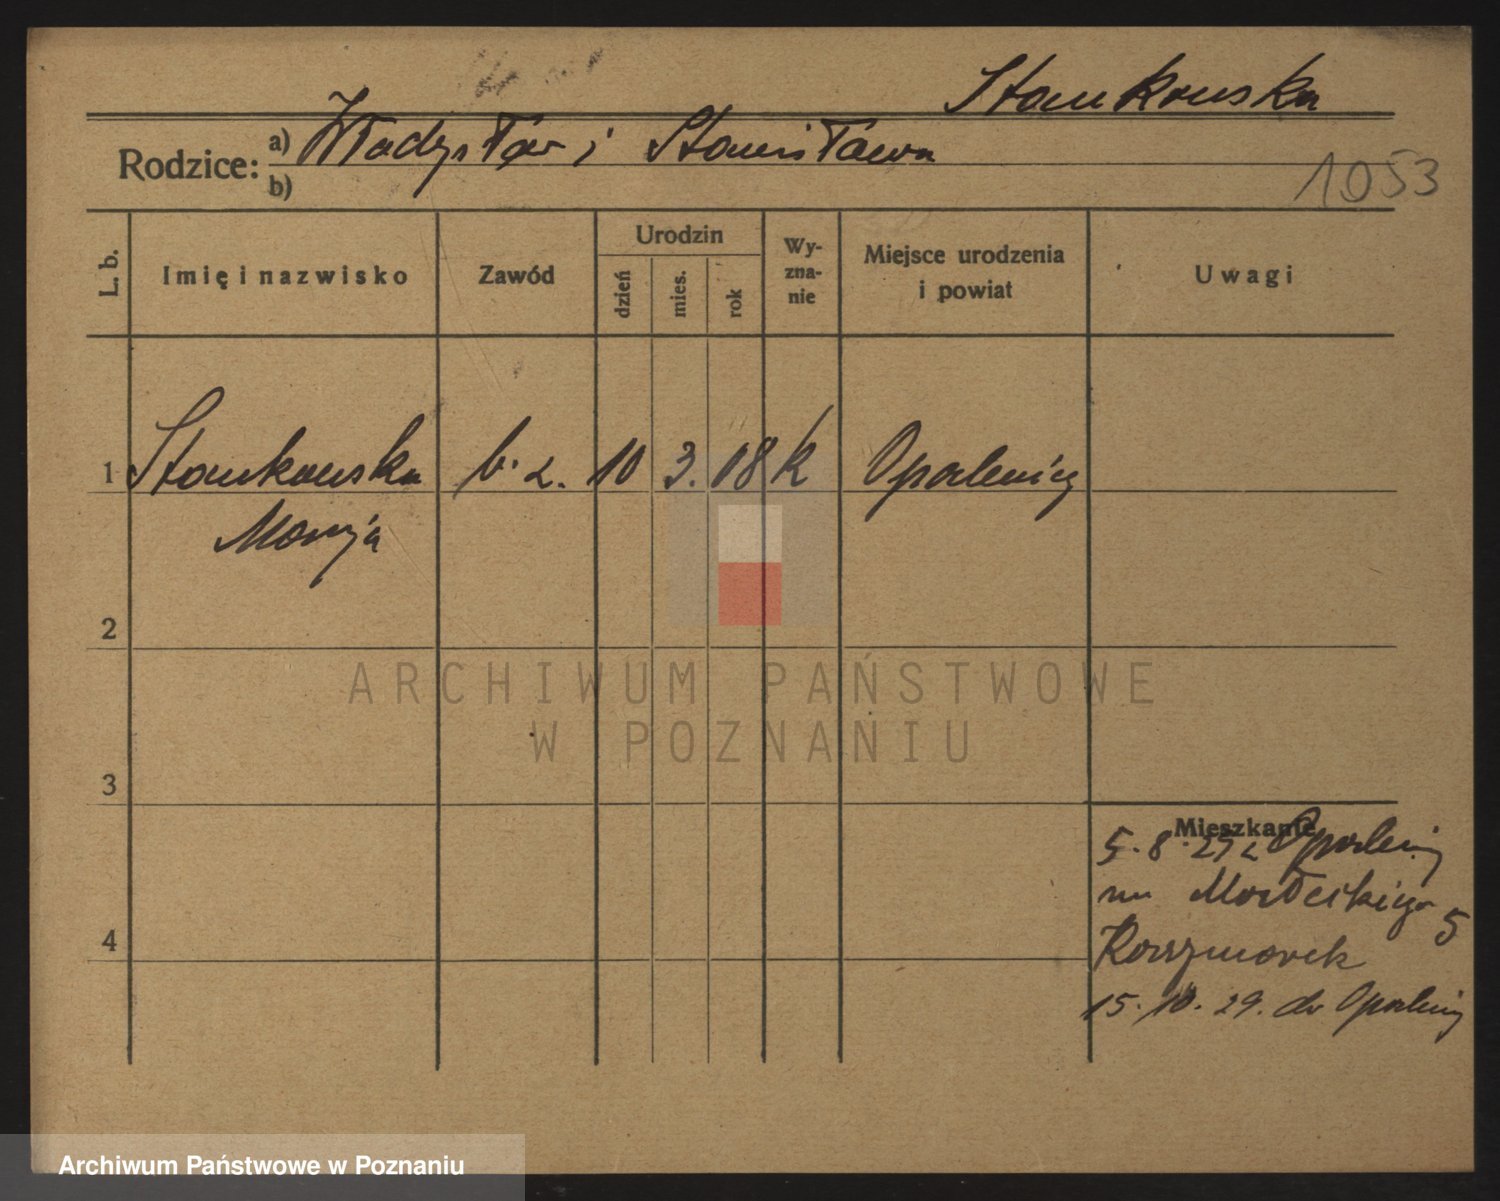 Stankowska
Rodzice: a) Władysław i Stanisława
b)
1053
L. b.
Imię i nazwisko
Zawód
Urodzin
dzień
mies.
rok
Wy-
zna-
nie
Miejsce urodzenia
i powiat
Uwagi
1 Stankowska b. z. 10 3. 08 k Opalenicy
Marja
2
ARCHIWUM PAŃSTWOWE
W POZNANIU
3
Mieszkanie
5. 8. 27 z Opalenicy
na Małeckiego 5
Kaczmarek
15. 10. 29. do Opalenicy
4
Archiwum Państwowe w Poznaniu